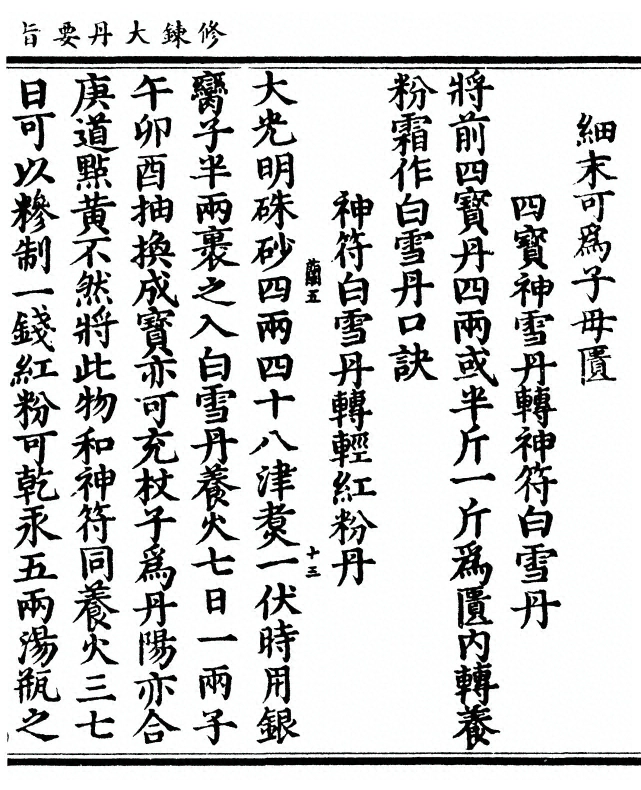 修鍊大丹要旨
細末可爲子母匱
四寶神雪丹轉神符白雪丹
將前四寶丹四兩或半斤一斤爲匱內轉養
粉霜作白雪丹口訣
神符白雪丹轉輕紅粉丹
蘭五
十三
大光明硃砂四兩四十八津煑一伏時用銀
臠子半兩裹之入白雪丹養火七日一兩子
午卯酉抽換成寶亦可充杖子爲丹陽亦合
庚道點黃不然將此物和神符同養火三七
日可以糝制一錢紅粉可乾汞五兩湯瓶之